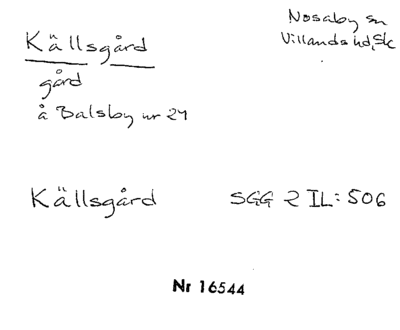 Källsgård
Nosaby sn
Villands hd, Sk
gård
å Balsby nr 24
Källsgård SGG 2 IL: 506
Nr 16544